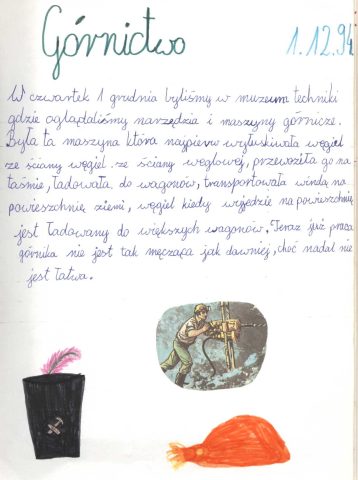 Górnictwo 1.12.94
W czwartek 1 grudnia byliśmy w muzeum techniki
gdzie oglądaliśmy narzędzia i maszyny górnicze.
Była ta maszyna która najpierw wyłuskiwała węgiel
ze ściany węgiel ze ściany węglowej, przewoziła go na
taśnie, ładowała do wagonów, transportowała windą na
powierzchnię ziemi, węgiel kiedy wyjedzie na powierzchnię
jest ładowany do większych wagonów. Teraz już praca
górnika nie jest tak męcząca jak dawniej, choć nadal nie
jest łatwa.